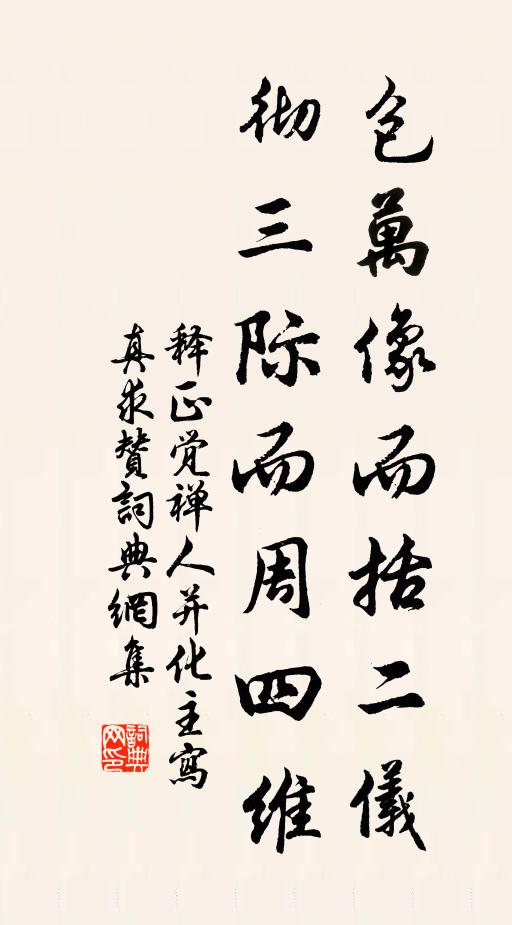 包萬像而括二儀
彻三际而周四维
释正觉禅人并化主寫
真求賛詞典網集
詞典网印